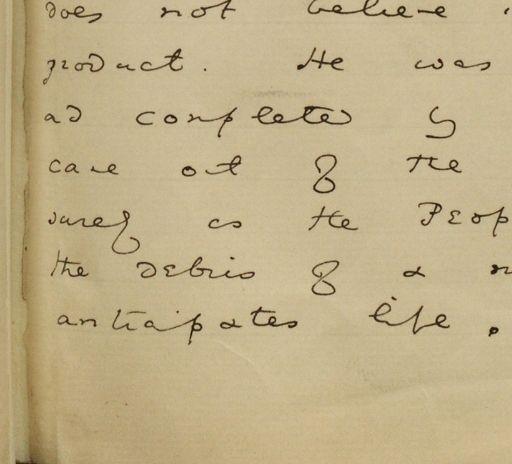 does not believe
product. He was
ad completed by
came out of the
surely as the Peop
the debris of a
anticipates life.